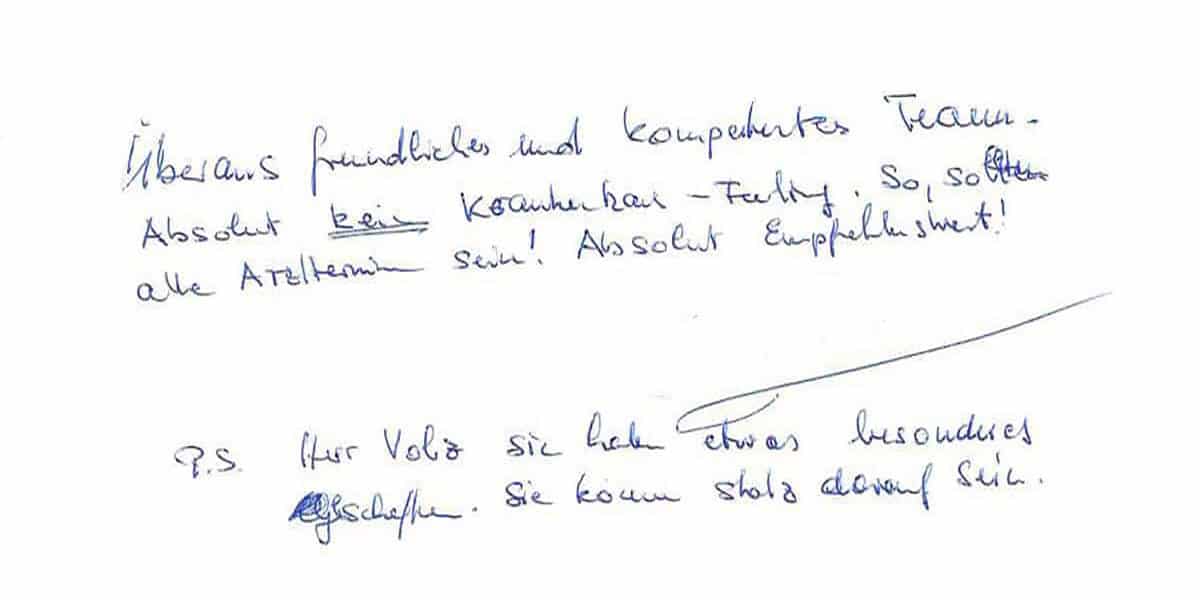 Überaus freundliches und kompetentes Team.
Absolut kein Krankenhaus-Feeling. So, sollten
alle Arzttermin sein! Absolut Empfehlenswert!
P.S. Herr Volz sie haben etwas besonderes
geschaffen. Sie können stolz darauf sein.